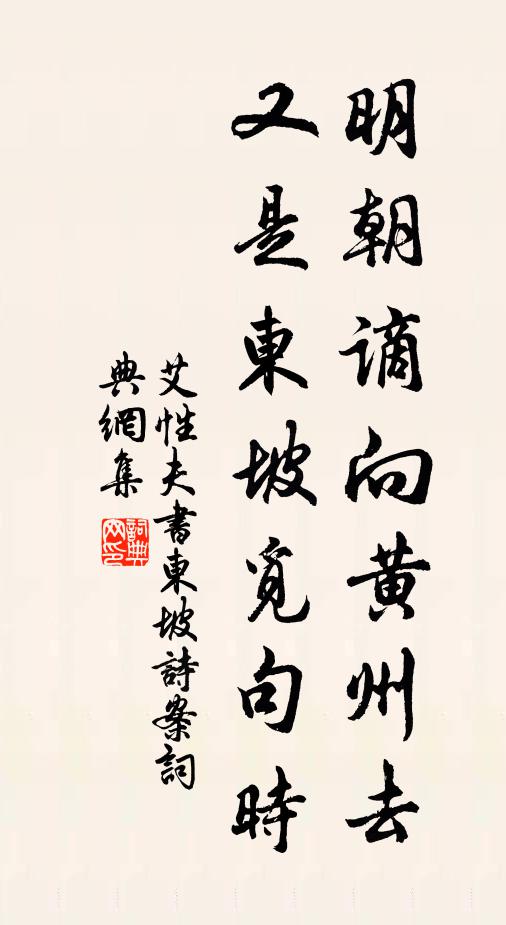 明朝謫向黄州去
又是東坡覓句時
艾性夫書東坡詩案詞
典網集
詞典
网印